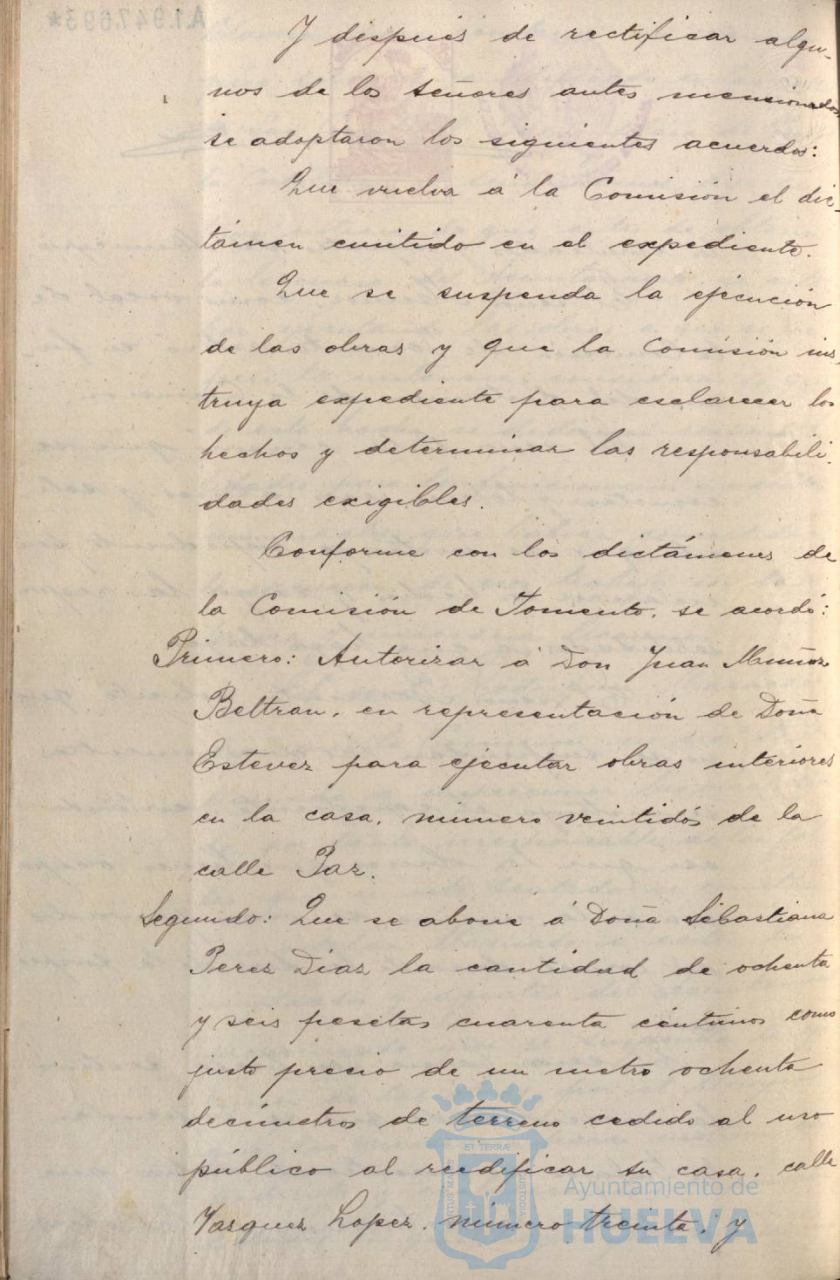 A1.947.693*
Y después de rectificar algu-
nos de los señores antes mencionados
se adoptaron los siguientes acuerdos:
Que vuelva á la Comisión el dic-
támen emitido en el expediente.
Que se suspenda la ejecución
de las obras y que la Comisión ins-
truya expediente para esclarecer los
hechos y determinar las responsabili-
dades exigibles.
Conforme con los dictámenes de
la Comisión de Fomento. se acordó:
Primero: Autorizar á Don Juan Muñoz
Beltran, en representación de Doña
Estevez para ejecutar obras interiores
en la casa, número veintidós de la
calle Paz.
Segundo: Que se abone á Doña Sebastiana
Perez Díaz la cantidad de ochenta
y seis pesetas cuarenta céntimos como
justo precio de un metro ochenta
decímetros de terreno cedido al uso
público al reedificar su casa, calle
Vazquez Lopez, número treinta, y
ET TERRÆ
CUSTODIA
Ayuntamiento de
HUELVA